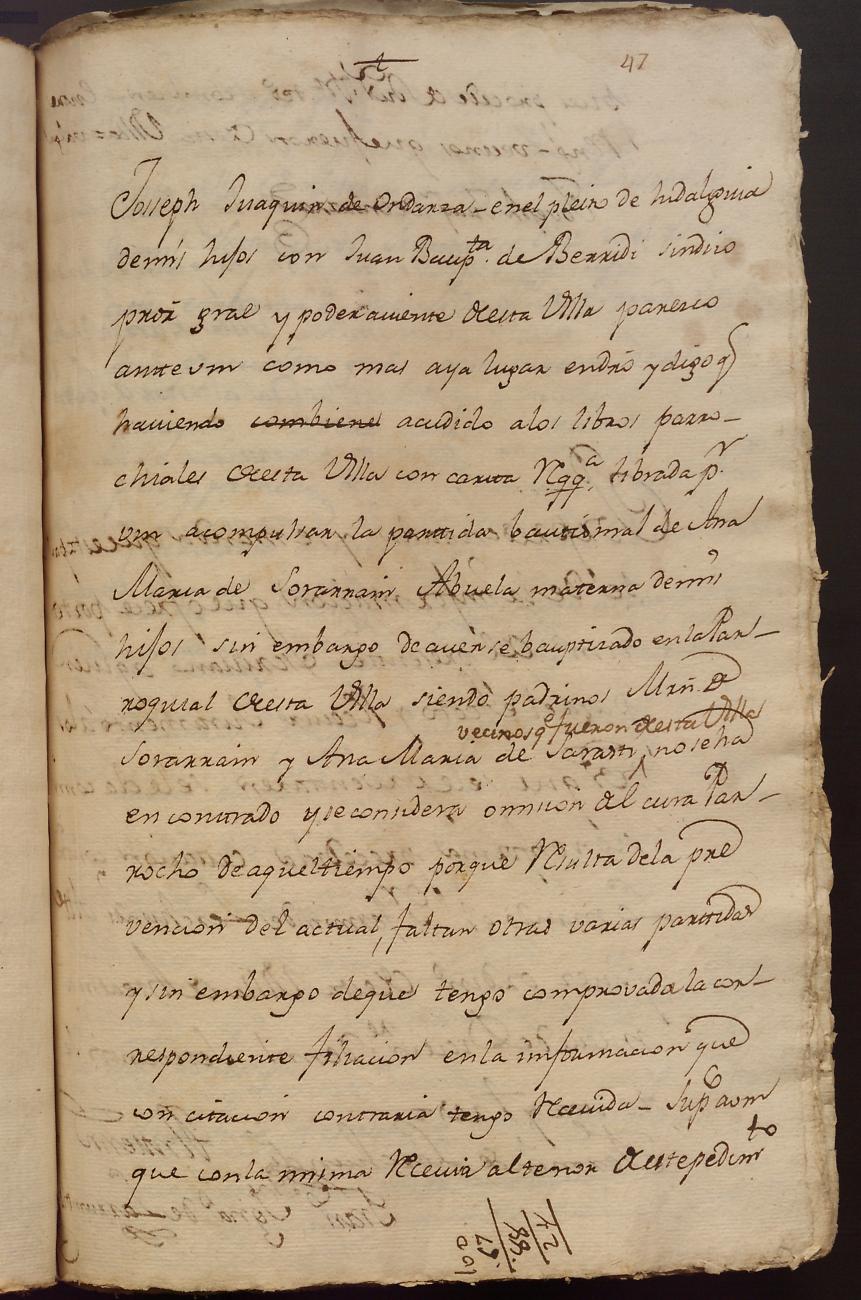 47
Joseph Juaquin de Ondarza en el pleito de hidalguia
de mis hijos con Juan Baupta. de Berridi sindico
pror gral y poder aviente desta Villa paresco
ante vm como mas aya lugar en dro y digo q
haviendo combiene acudido a los libros parro-
chiales desta Villa con carta Rqqa, librada pr.
vm a compulsar la partida bautismal de Ana
Maria de Sorarrain Abuela materna de mis
hijos sin embargo de averse bauptizado en la Par-
roquial desta Villa siendo padrinos Mrñ. de
vecinos qe fueron desta Villa
Sorarrain y Ana Maria de Sarasti, no se ha
encontrado y se considera omision del cura Par-
rocho de aquel tiempo porque Resulta de la pre
vencion del actual, faltan otras varias partidas
y sin embargo de que tengo comprovada la cor-
respondiente filiacion en la imformacion que
con citacion contraria tengo Recevida - Supco a vm
que con la misma Recevir al tenor deste pedimto
42
88.